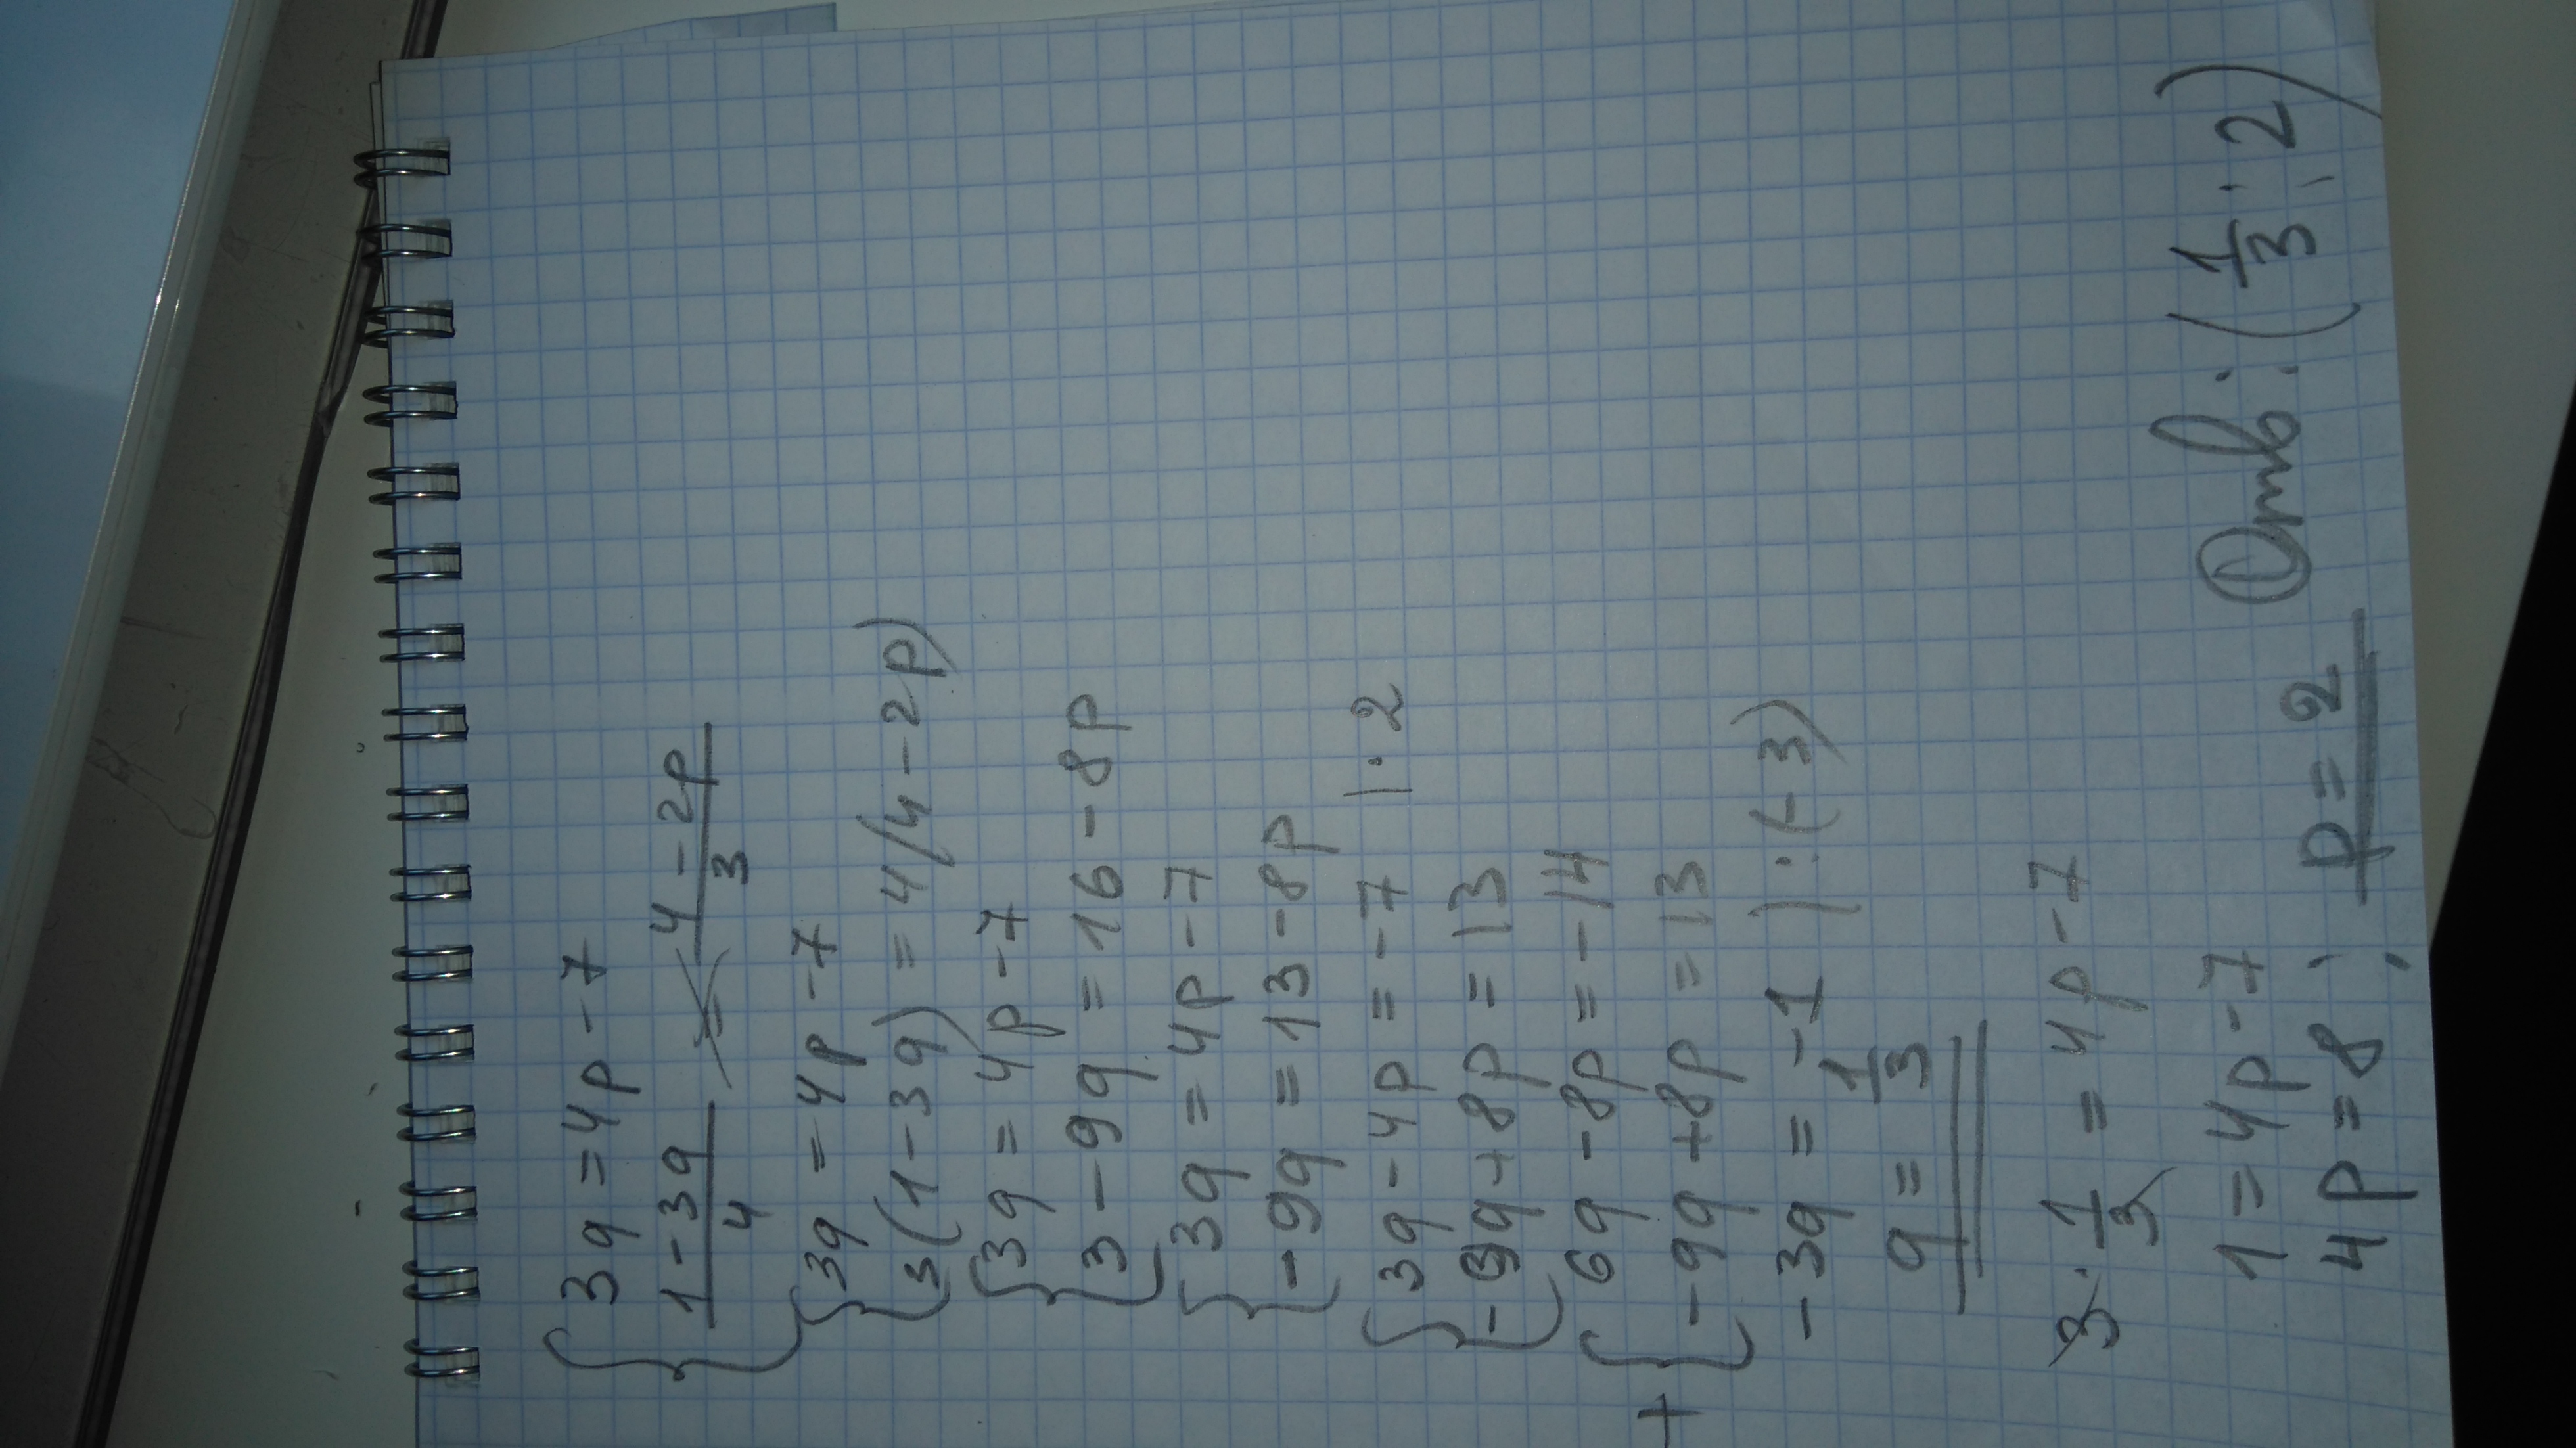 { 3q = 4p - 7
1 - 3q / 4 = 4 - 2p / 3
{ 3q = 4p - 7
3(1 - 3q) = 4(4 - 2p)
{ 3q = 4p - 7
3 - 9q = 16 - 8p
{ 3q = 4p - 7
-9q = 13 - 8p
{ 3q - 4p = -7 |· 2
-9q + 8p = 13
+ { 6q - 8p = -14
-9q + 8p = 13
-3q = -1 | :(-3)
q = 1/3
3 · 1/3 = 4p - 7
1 = 4p - 7
4p = 8; p = 2
Отв: (1/3; 2)